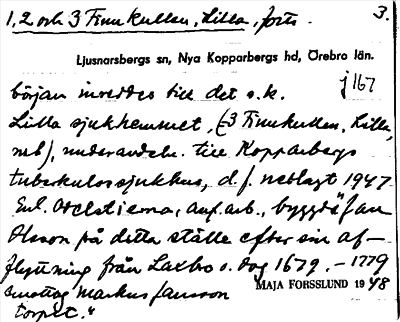 1, 2 och 3 Finnkullen, Lilla, forts. 3.
Ljusnarsbergs sn, Nya Kopparbergs hd, Örebro län.
j 167
början inreddes till det s.k.
Lilla sjukhemmet, (3 Finnkullen, Lilla,
neb), underavdeln. till Kopparbergs
tuberkulossjukhus, d.f. nedlagt 1947
Enl. Odelstierna, anf. arb., byggde "Jan
Olsson på detta ställe efter sin af-
flyttning från Laxbro o. dog 1679. - 1779
emottog Markus Jansson
torpet."
MAJA FORSSLUND 1948